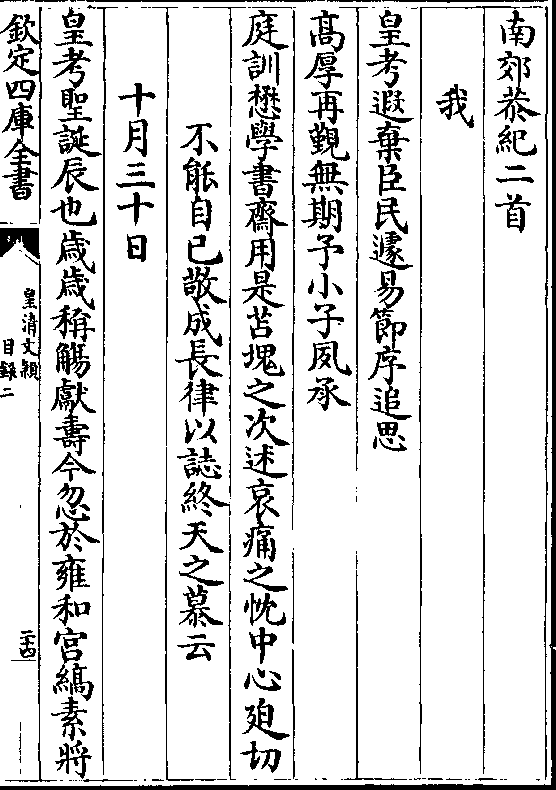 南郊恭紀二首
我
皇考遐棄臣民遽易節序追思
高厚再覲無期予小子夙承
庭訓懋學書齋用是苫塊之次述哀痛之忱中心廹切
不能自已敬成長律以誌終天之慕云
十月三十日
皇考聖誕辰也歲歲稱觴獻壽今忽於雍和宮縞素將
欽定四庫全書
皇清文穎
目錄二
二十四